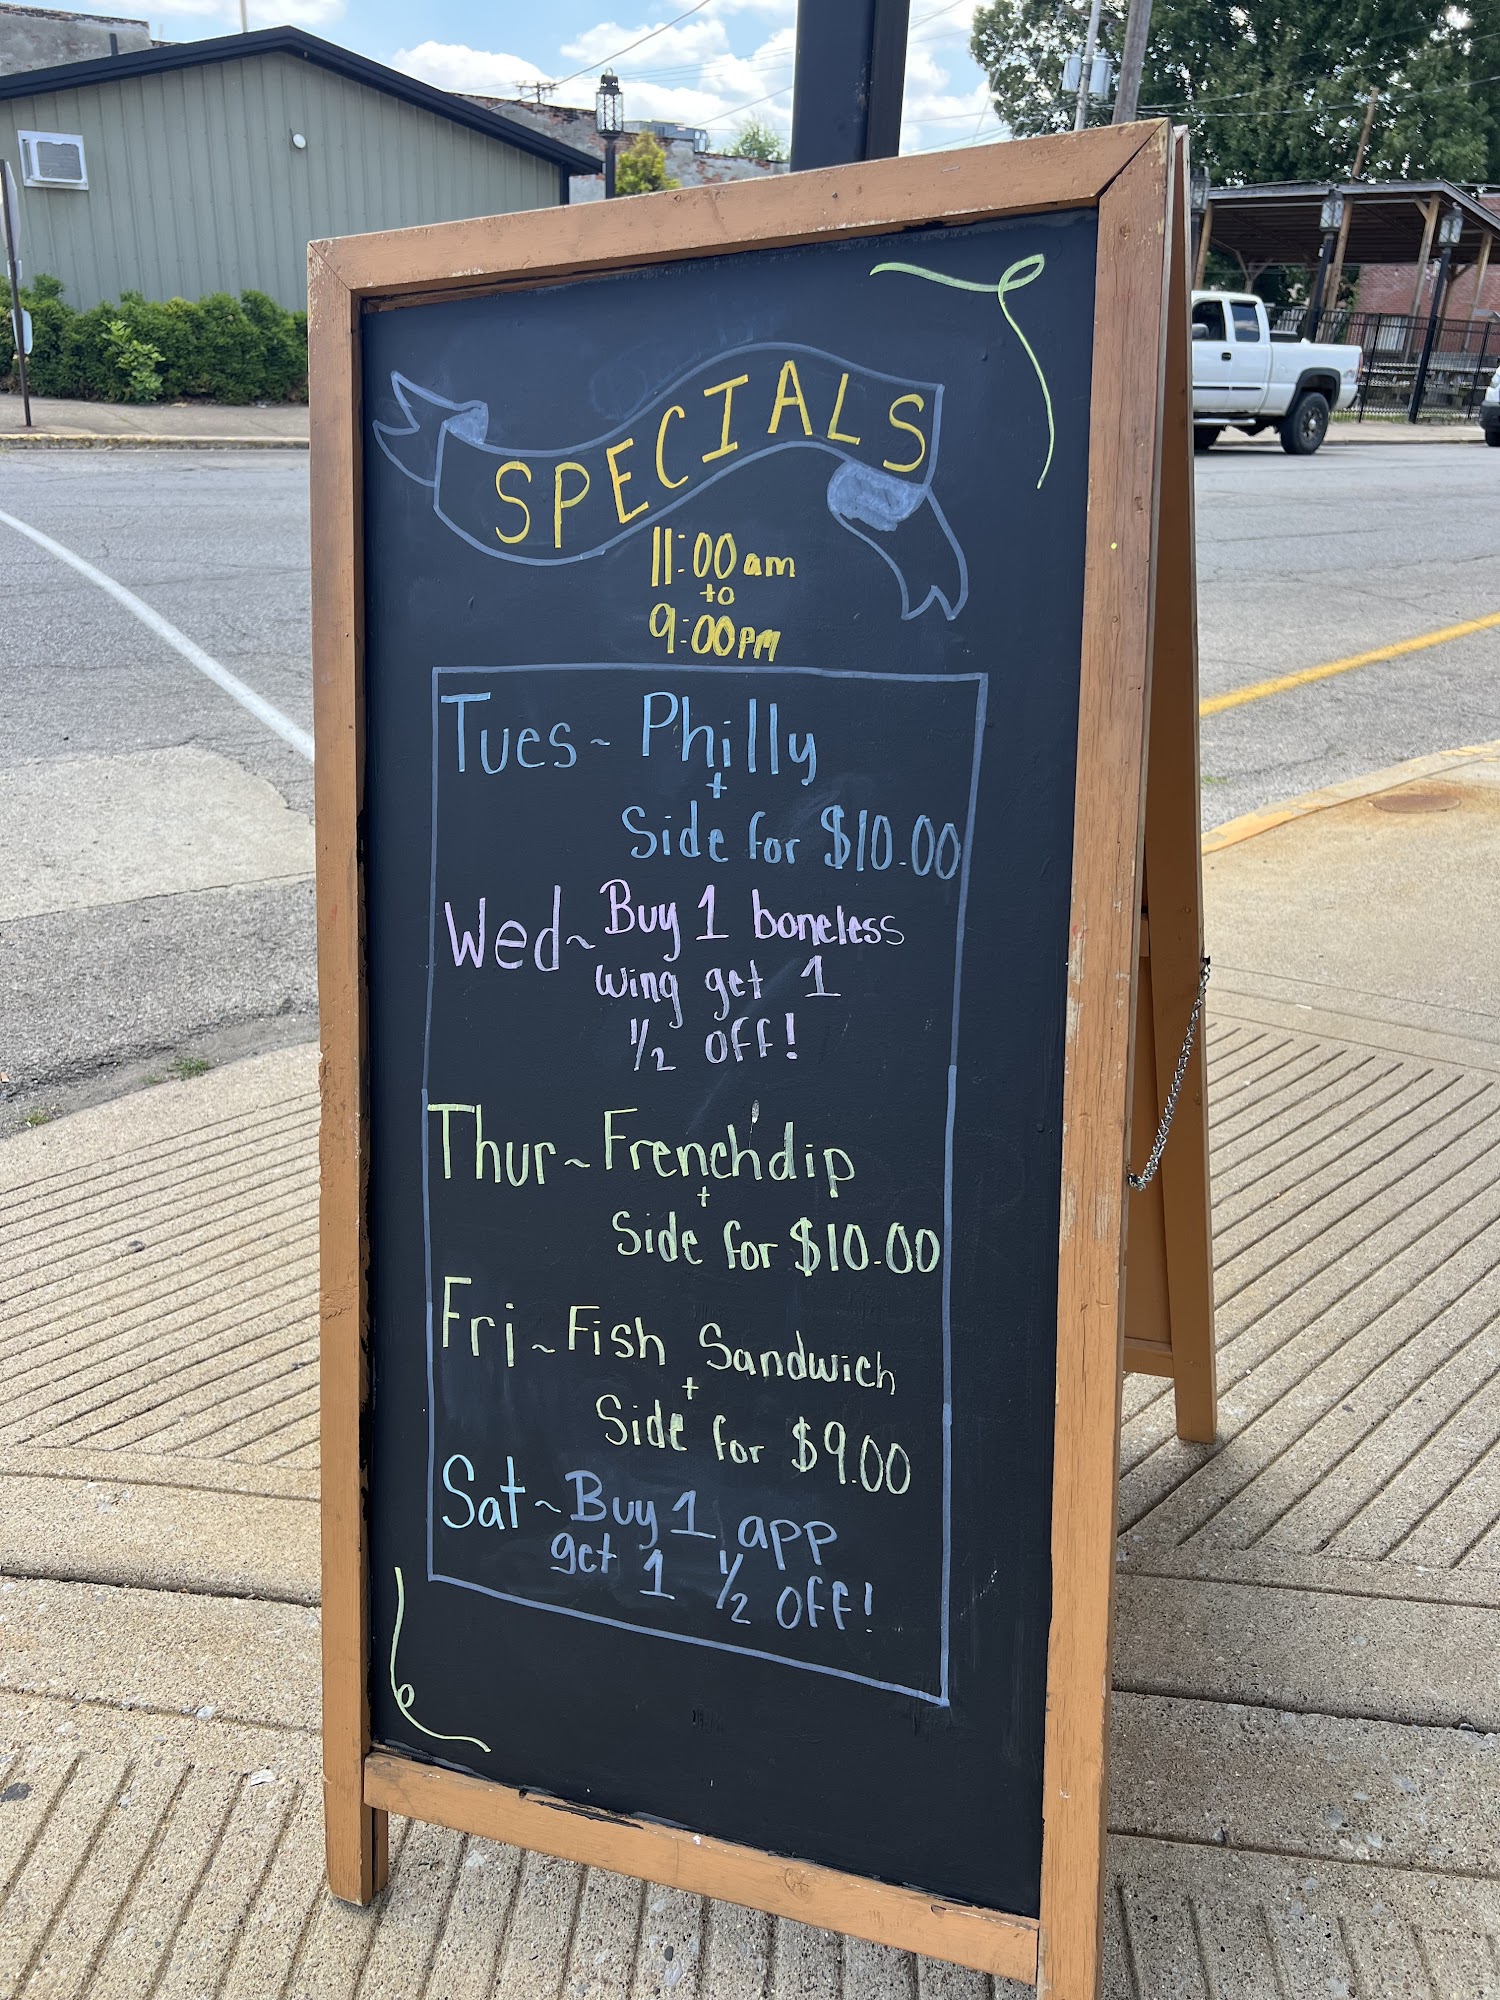 SPECIALS
11:00 am
to
9:00 PM
Tues ~ Philly
+
Side for $10.00
Wed ~ Buy 1 boneless
wing get 1
1/2 OFF!
Thur ~ French dip
+
Side for $10.00
Fri ~ Fish Sandwich
+
Side for $9.00
Sat ~ Buy 1 app
get 1 1/2 OFF!